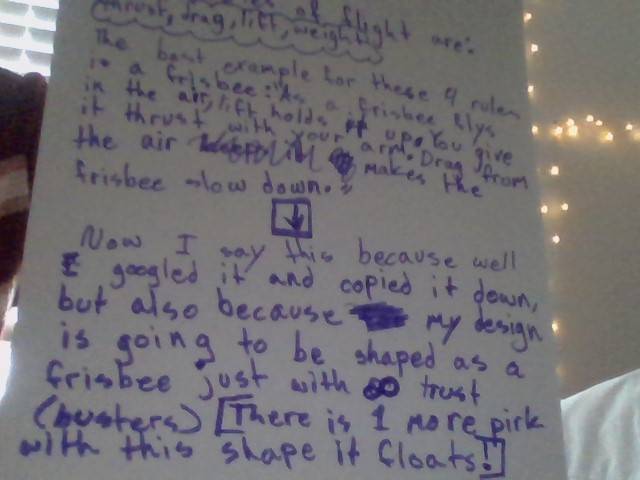 of flight are:
thrust, drag, lift, weight
The best example for these 4 rules
is a frisbee: "As a frisbee flys
in the air, lift holds it up. You give
it thrust with your arm. Drag from
the air makes the
frisbee slow down."
Now I say this because well
I googled it and copied it down,
but also because my design
is going to be shaped as a
frisbee just with trust
(busters) [There is 1 more pirk
with this shape it floats!]